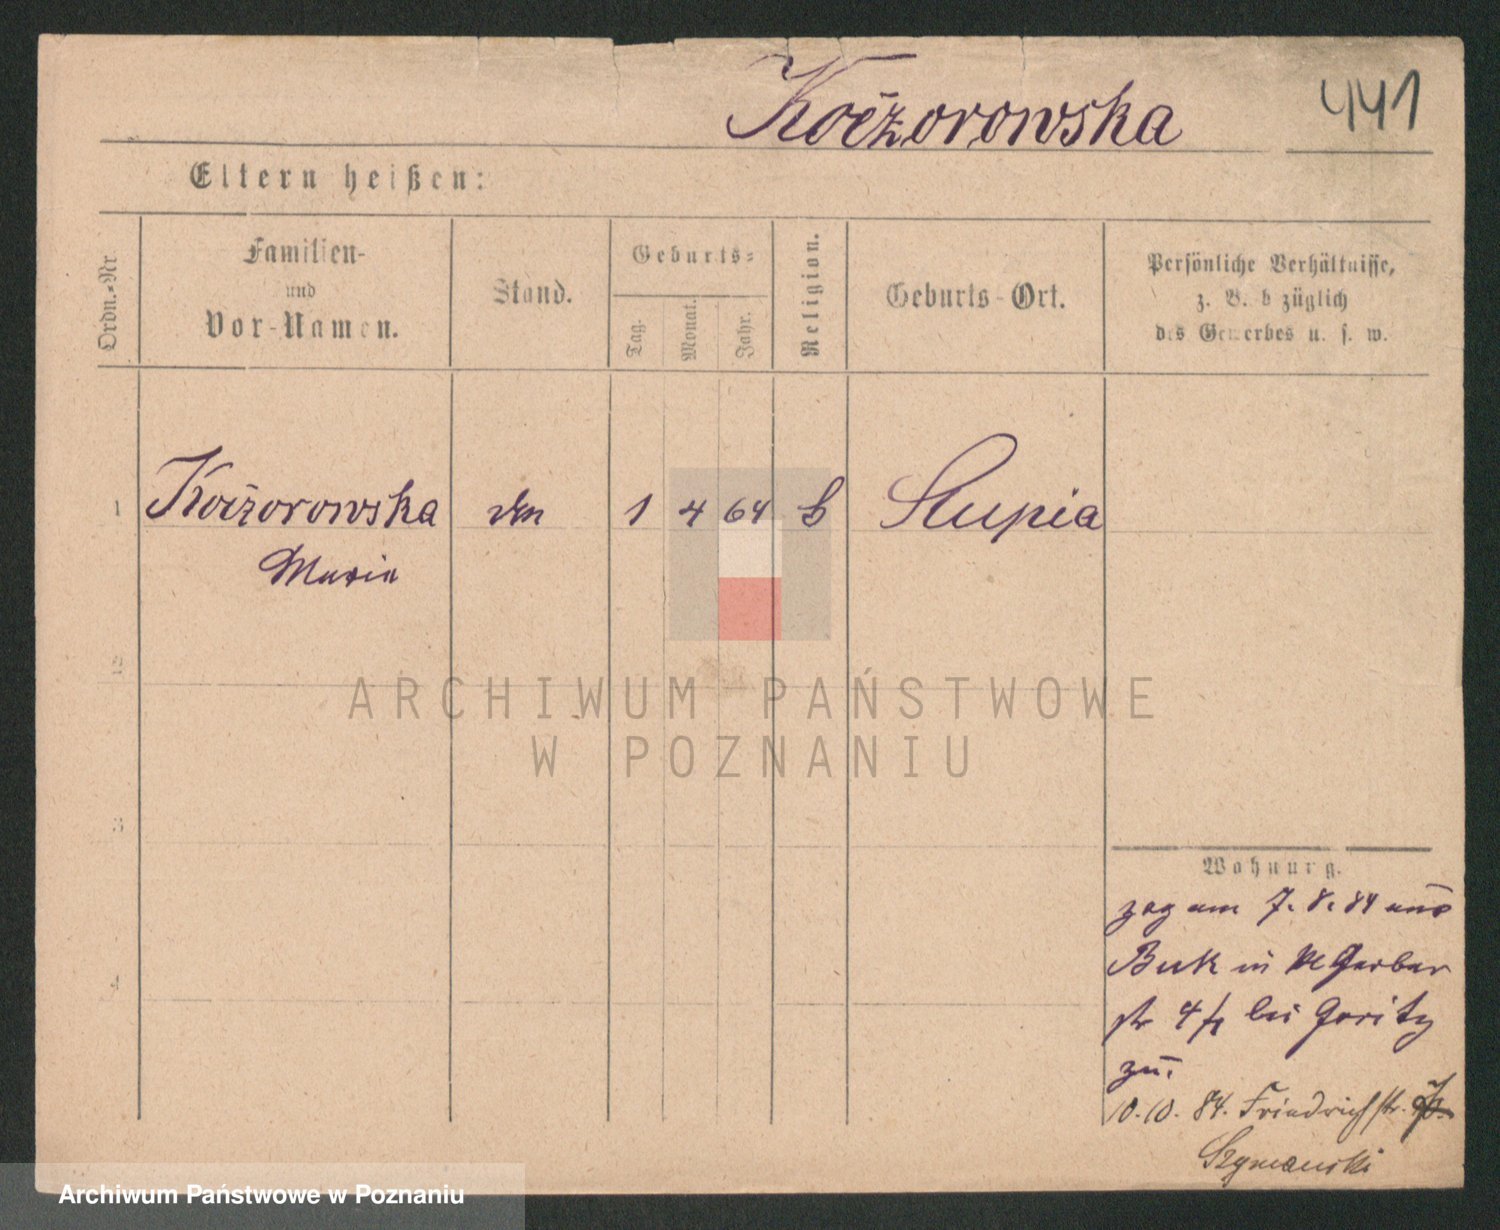 Koczorowska 441
Eltern heißen:
Ordn.-Nr.
Familien-
und
Vor-Namen.
Stand.
Geburts-
Tag.
Monat.
Jahr.
Religion.
Geburts-Ort.
Persönliche Verhältnisse,
z. B. bezüglich
des Gewerbes u. s. w.
1 Koczorowska 1 4 64 Slupia
Maria
2
ARCHIWUM PAŃSTWOWE
W POZNANIU
3
Wohnung.
zog am 7. 8. 84 aus
4
Buk in kl Gerber
str 4 bei Goritz
zu.
10. 10. 84. Friedrichstr.
Szymanski
Archiwum Państwowe w Poznaniu